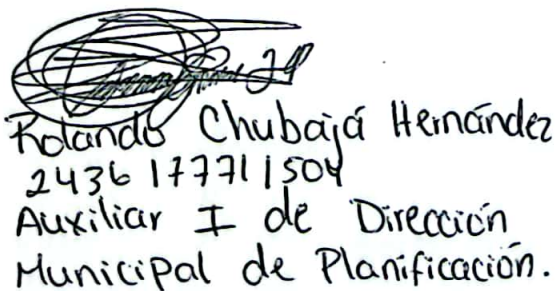 Rolando Chubajá Hernández
2436 17771 1504
Auxiliar I de Dirección
Municipal de Planificación.